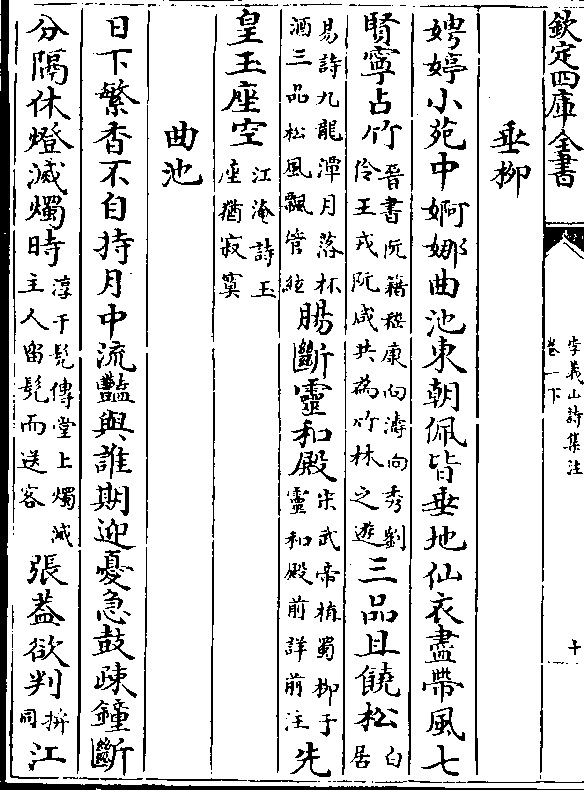 欽定四庫全書
李義山詩集注
卷一下
十
垂柳
娉婷小苑中婀娜曲池東朝佩皆垂地仙衣盡帶風七
賢寧占竹晉書阮籍嵇康向濤向秀劉伶王戎阮咸共為竹林之遊三品且饒松白居
易詩九龍潭月落杯酒三品松風飄管絃腸斷靈和殿宋武帝植蜀柳于靈和殿前詳前注先
皇玉座空江淹詩玉座猶寂寞
曲池
日下繁香不自持月中流豔與誰期迎憂急鼓疎鐘斷
分隔休燈滅燭時淳于髠傳堂上燭滅主人留髠而送客張葢欲判拚同江